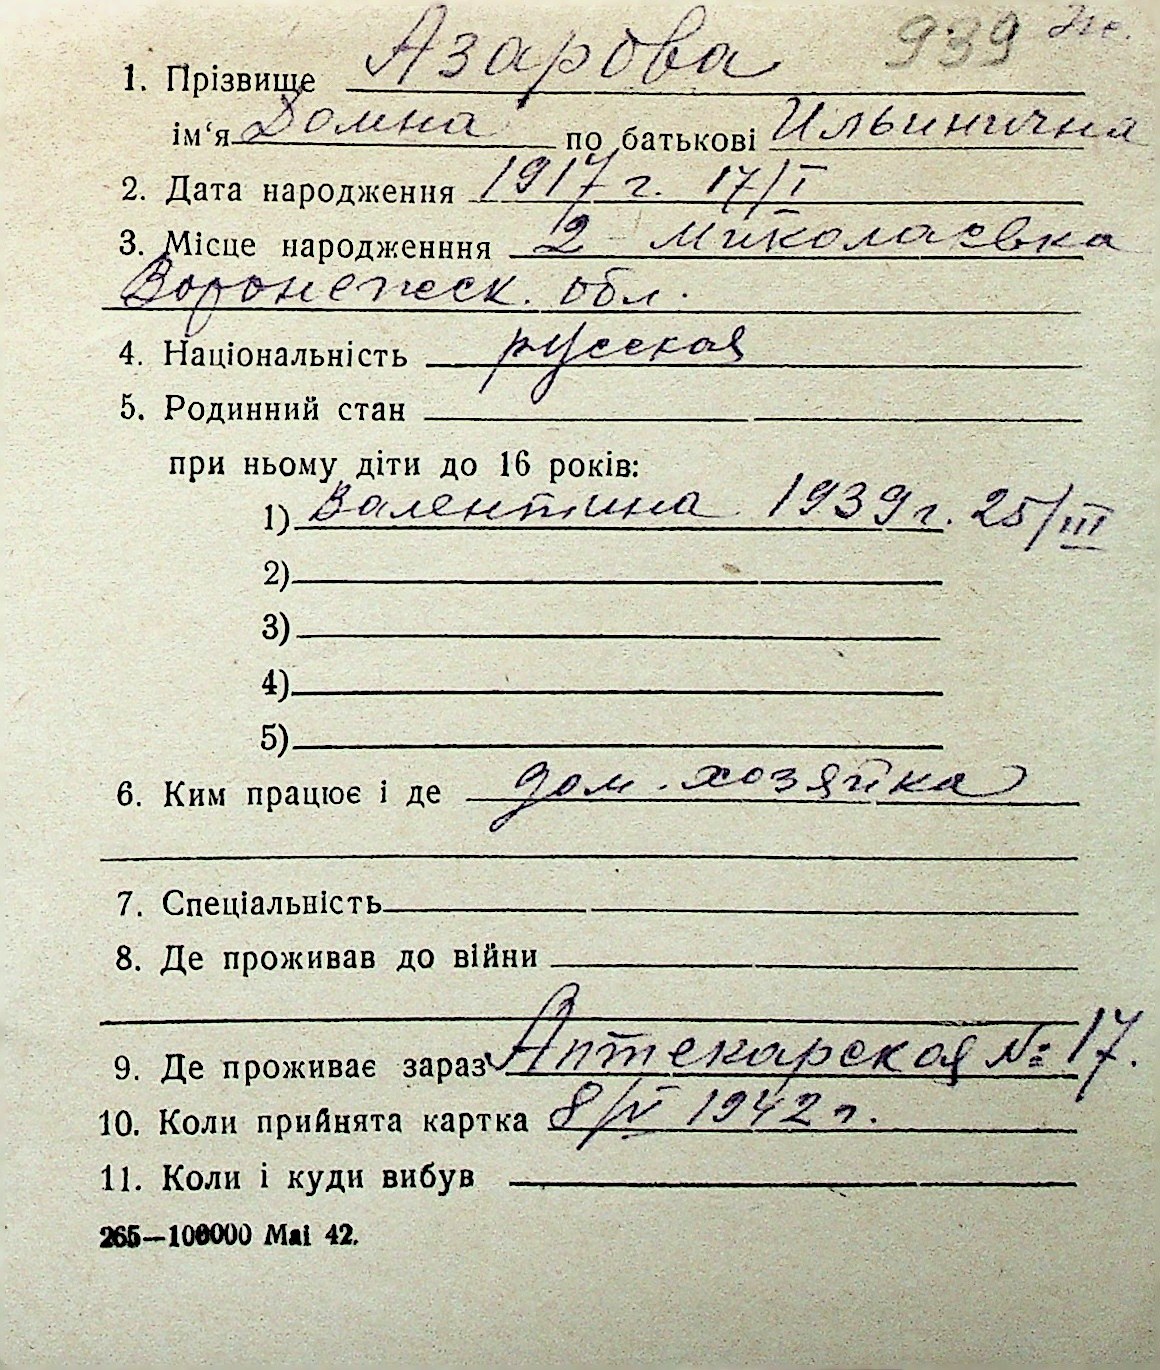 939 Же.
1. Прізвище Азарова
ім‘я Домна по батькові Ильинична
2. Дата народження 1917 г. 17/I
3. Місце народженння 2 Миколаевка
Воронежск. обл.
4. Національність русская
5. Родинний стан
при ньому діти до 16 років:
1) Валентина 1939 г. 25/III
2)
3)
4)
5)
6. Ким працює і де дом. хозяйка
7. Спеціальність
8. Де проживав до війни
9. Де проживає зараз Аптекарская № 17.
10. Коли прийнята картка 8/VI 1942 г.
11. Коли і куди вибув
265—100000 Mai 42.